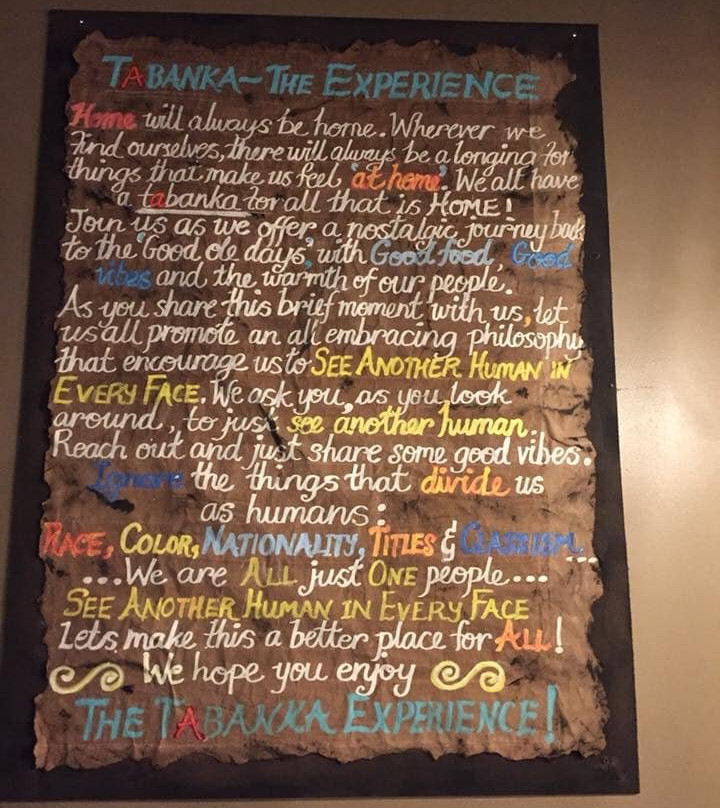 TABANKA~THE EXPERIENCE
Home will always be home. Wherever we
find ourselves, there will always be a longing for
things that make us feel 'at home'. We all have
a tabanka for all that is HOME!
Join us as we offer a nostalgic journey back
to the 'Good ole days', with Good food, Good
vibes and the warmth of our people.
As you share this brief moment with us, let
us all promote an all embracing philosophy
that encourage us to SEE ANOTHER HUMAN IN
EVERY FACE. We ask you, as you look
around, to just see another human.
Reach out and just share some good vibes.
Ignore the things that divide us
as humans:
RACE, COLOR, NATIONALITY, TITLES & CLASSISM...
...We are ALL just ONE people...
SEE ANOTHER HUMAN IN EVERY FACE
Lets make this a better place for ALL!
We hope you enjoy
THE TABANKA EXPERIENCE!